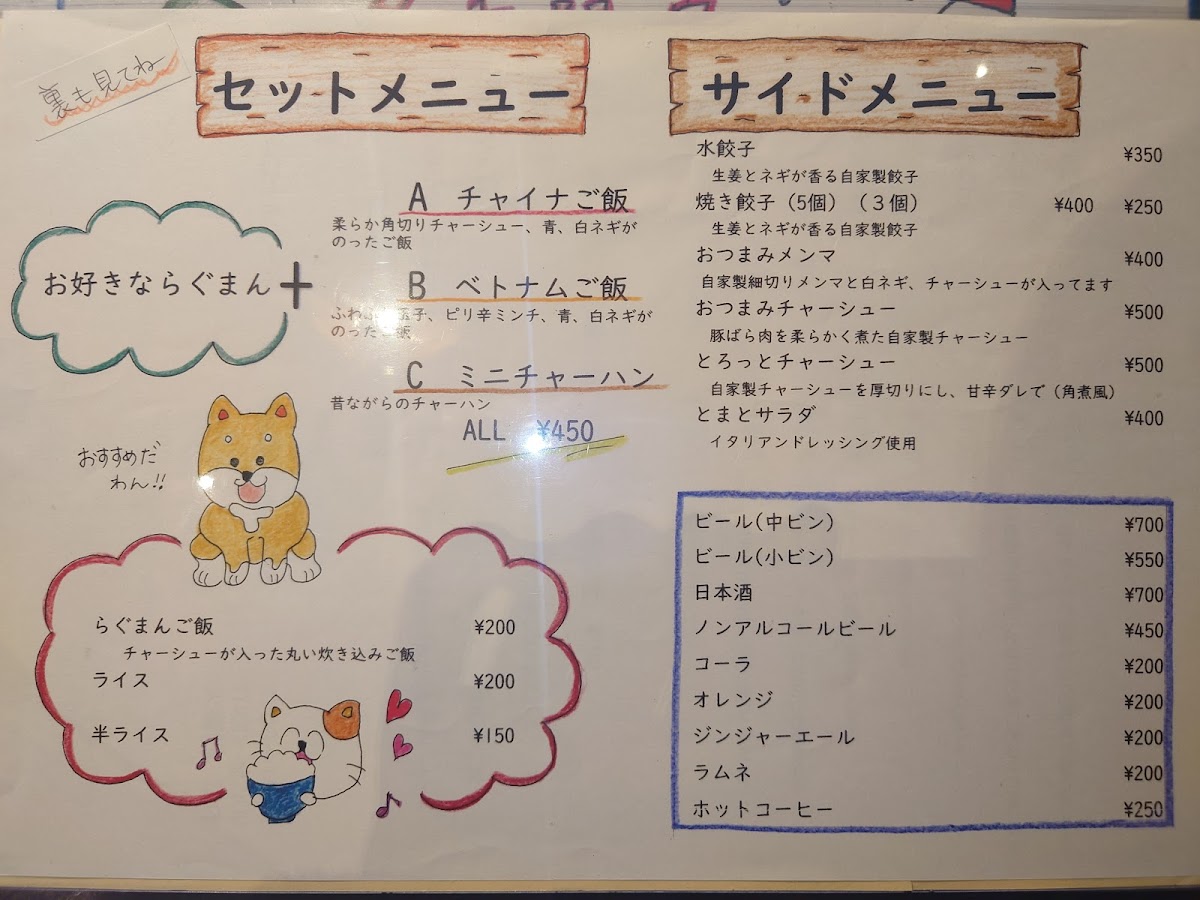 裏も見てねー
セットメニュー
お好きならぐまん＋
A チャイナご飯
柔らか角切りチャーシュー、青、白ネギが
のったご飯
B ベトナムご飯
玉子、ピリ辛ミンチ、青、白ネギが
のった
C ミニチャーハン
昔ながらのチャーハン
ALL ¥450
おすすめだ
わん!!
らぐまんご飯 ¥200
チャーシューが入った丸い炊き込みご飯
ライス ¥200
半ライス ¥150
サイドメニュー
水餃子 ¥350
生姜とネギが香る自家製餃子
焼き餃子（5個）（３個） ¥400 ¥250
生姜とネギが香る自家製餃子
おつまみメンマ ¥400
自家製細切りメンマと白ネギ、チャーシューが入ってます
おつまみチャーシュー ¥500
豚ばら肉を柔らかく煮た自家製チャーシュー
とろっとチャーシュー ¥500
自家製チャーシューを厚切りにし、甘辛ダレで（角煮風）
とまとサラダ ¥400
イタリアンドレッシング使用
ビール(中ビン) ¥700
ビール(小ビン) ¥550
日本酒 ¥700
ノンアルコールビール ¥450
コーラ ¥200
オレンジ ¥200
ジンジャーエール ¥200
ラムネ ¥200
ホットコーヒー ¥250